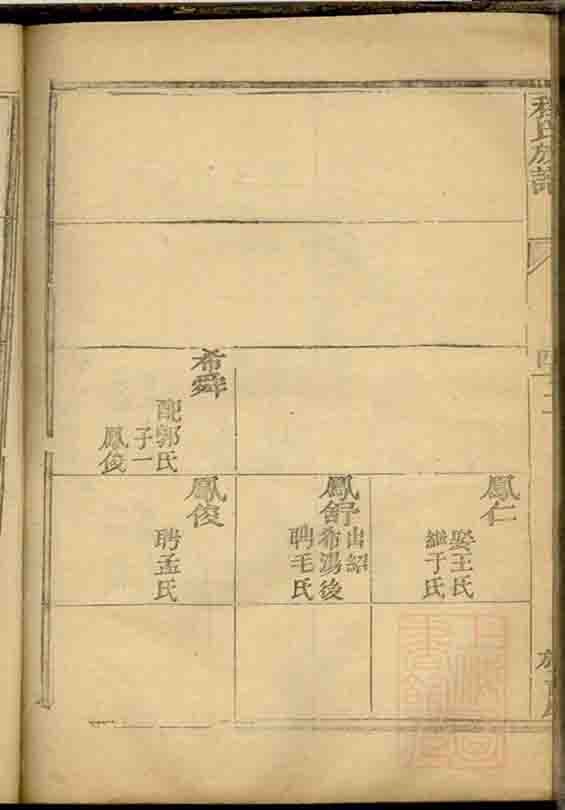 程氏族譜
四十二
鳳仁
娶王氏
繼于氏
鳳舒
出紹
希湯後
聘毛氏
希舜
配郭氏
子一
鳳俊
鳳俊
聘孟氏